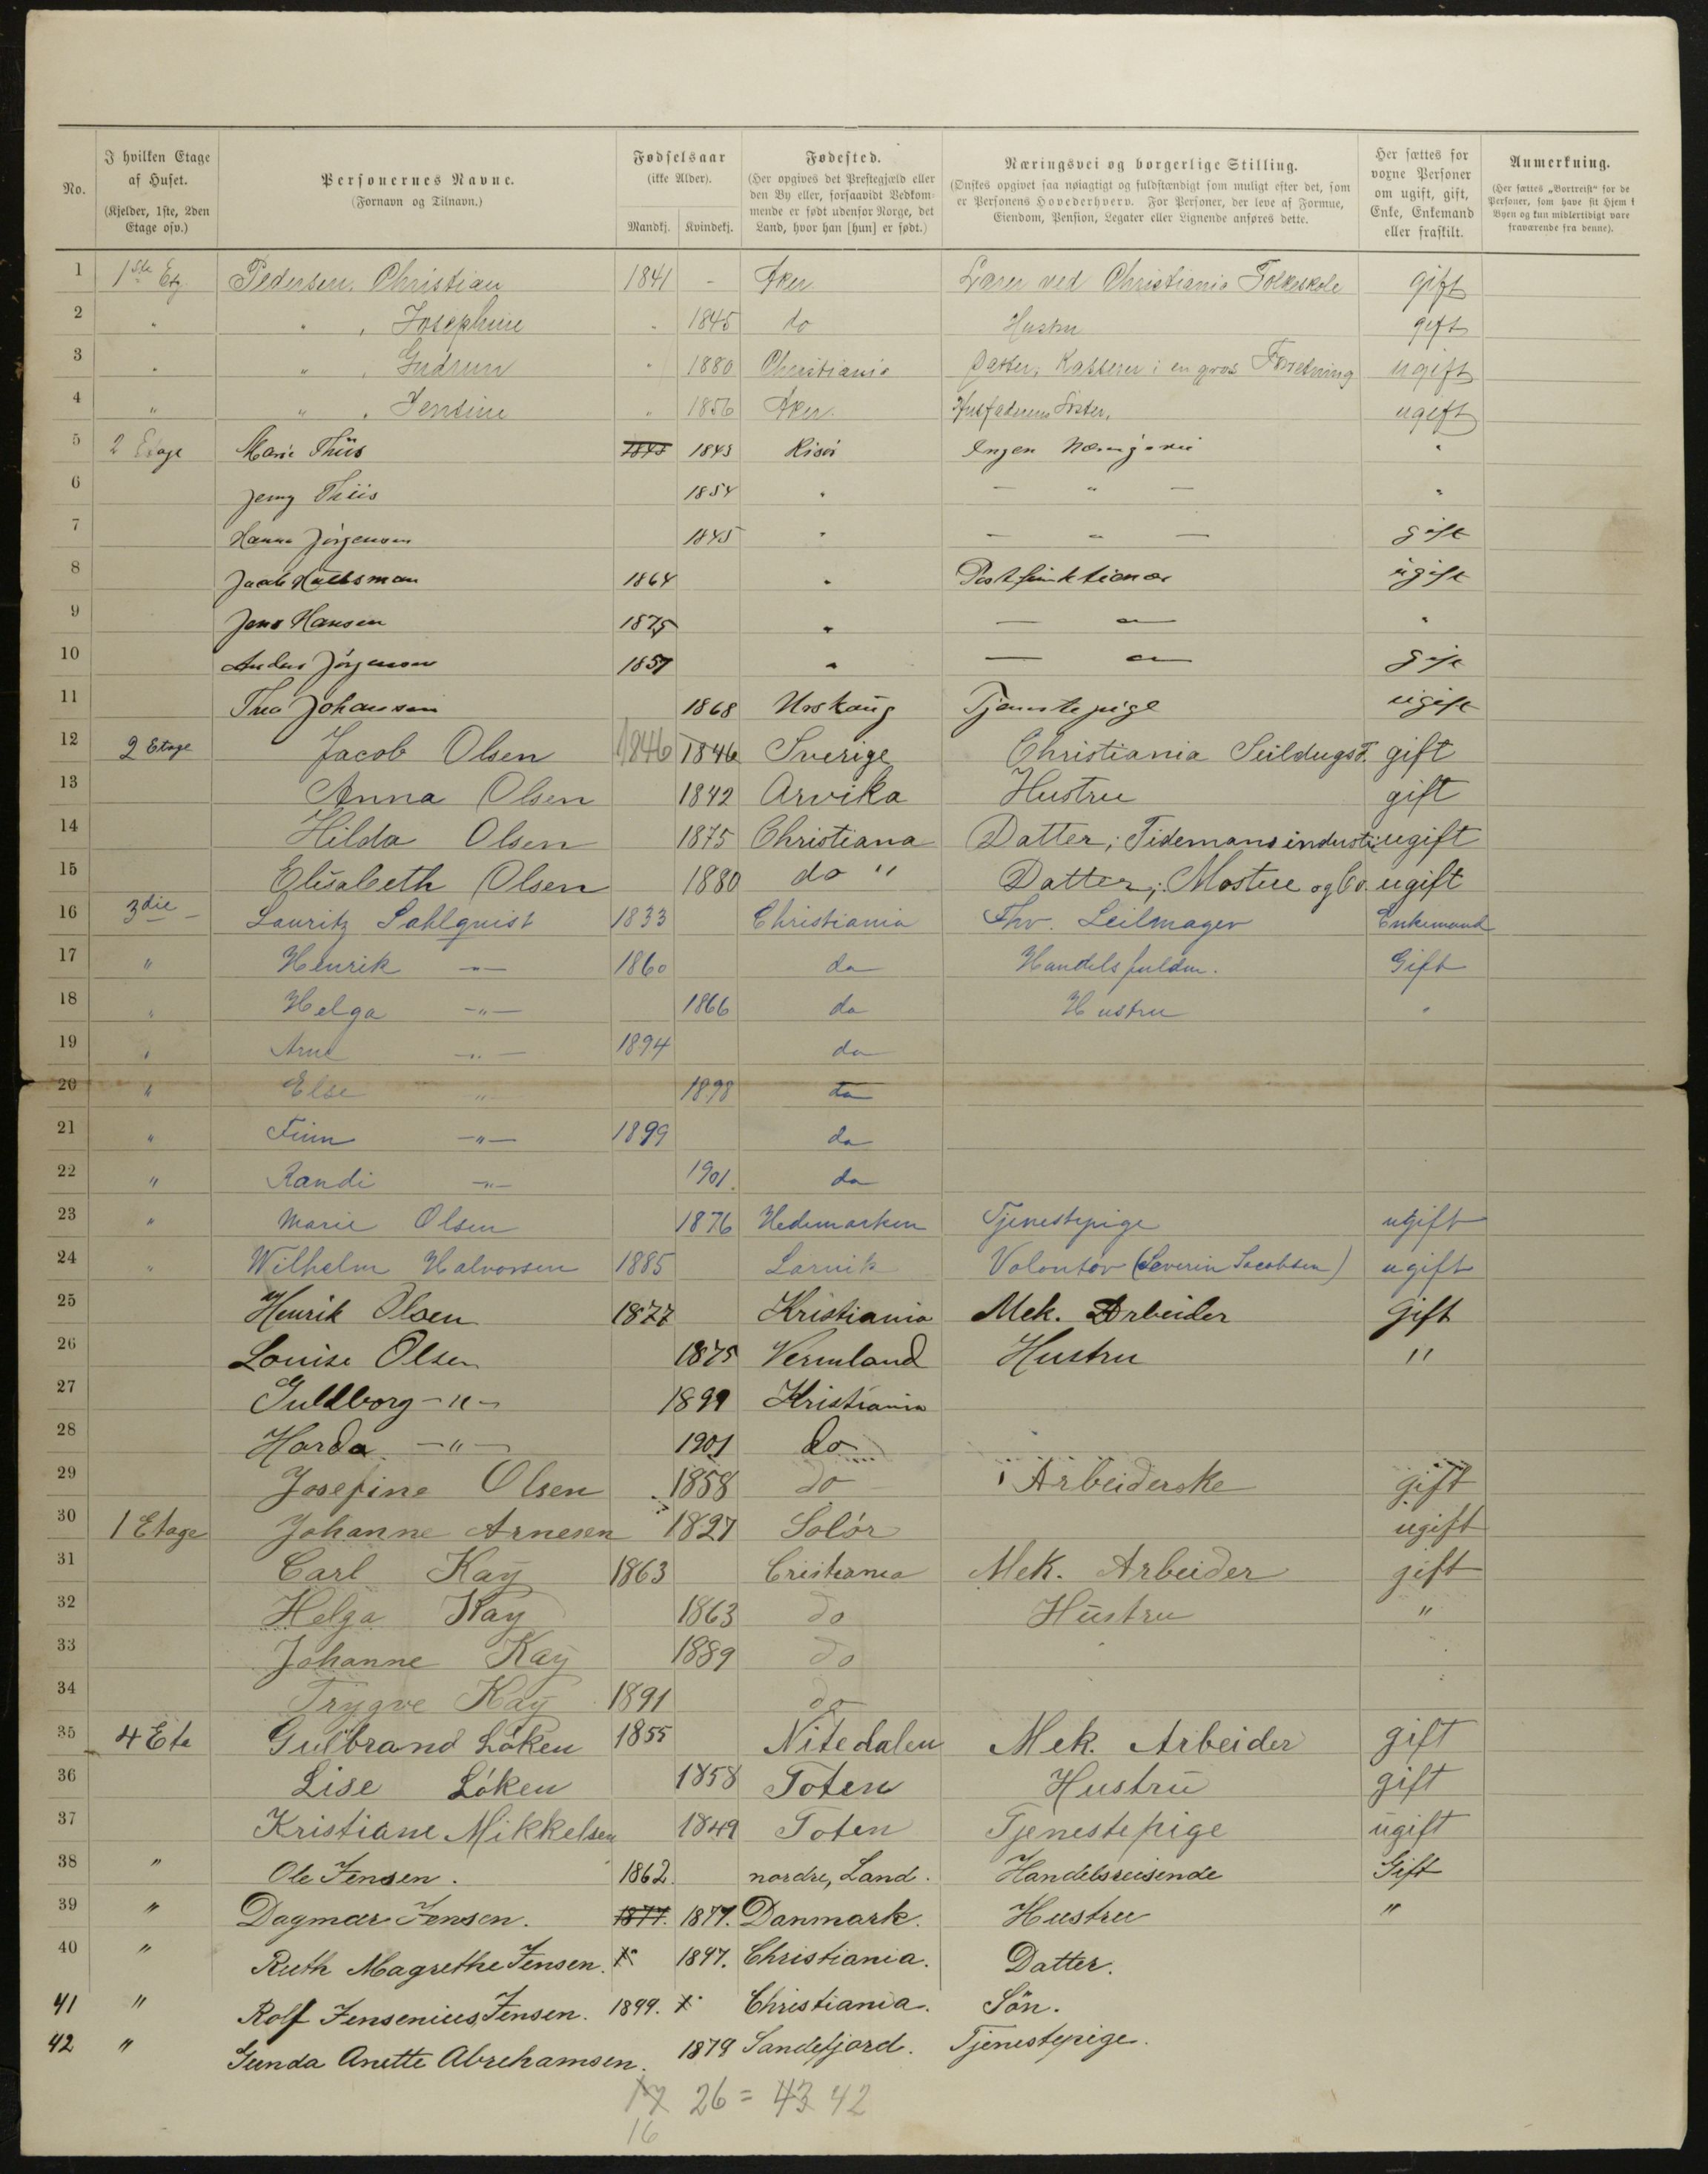 No. I hvilken Etage af Huset. (Kjelder, 1ste, 2den Etage osv.) Personernes Navne. (Fornavn og Tilnavn.) Fødselsaar (ikke Alder). Mandkj. Kvindekj. Fødested. (Her opgives det Prestegjæld eller den By eller, forsaavidt Vedkommende er født udenfor Norge, det Land, hvor han [hun] er født.) Næringsvei og borgerlige Stilling. (Ønskes opgivet saa nøiagtigt og fuldstændigt som muligt efter det, som er Personens Hovederhverv. For Personer, der leve af Formue, Eiendom, Pension, Legater eller Lignende anføres dette. Her sættes for voxne Personer om ugift, gift, Enke, Enkemand eller fraskilt. Anmerkning. (Her sættes „Bortreist“ for de Personer, som have sit Hjem i Byen og kun midlertidigt vare fraværende fra denne).
1 1ste Etg. Pedersen, Christian 1841 - Aker Lærer ved Christiania Folkeskole gift
2 " " , Josephine " 1845 do Hustru gift
3 " " , Gudrun " 1880 Christiania Datter, Kasserer i en gros Forretning ugift
4 " " , Jensine " 1856 Aker. Husfaderens Søster, ugift
5 2 Etage Marie Thiis 1843 1843 Risør Ingen Næringsvei "
6 Jenny Thiis 1854 " — " — "
7 Hanna Jørgensen 1845 " — " — gift
8 Jacob 1864 " Postfunktionær ugift
9 Jens Hansen 1875 " — " — "
10 Anders Jørgensen 1857 " — " — gift
11 Thea Johansen 1868 Urskaug Tjenestepige ugift
12 2 Etage Jacob Olsen 1846 1846 Sverige Christiania Seildugsf. gift
13 Anna Olsen 1842 Arvika Hustru gift
14 Hilda Olsen 1875 Christiana Datter; Tidemans industi ugift
15 Elisabeth Olsen 1880 do " Datter; Mostue og Co. ugift
16 3die – Lauritz Sahlquist 1833 Christiania Fhv. Seilmager Enkemand
17 " Henrik —"— 1860 do Handelsfuldm. Gift
18 " Helga —"— 1866 do Hustru "
19 " Arne —"— 1894 do
20 " Else " 1898 do
21 " Finn —"— 1899 do
22 " Randi —"— 1901. do
23 " Marie Olsen 1876 Hedemarken Tjenestepige ugift
24 " Wilhelm Halvorsen 1885 Larvik Volontør (Severin Jacobsen) ugift
25 Henrik Olsen 1877 Kristiania Mek. Arbeider gift
26 Louise Olsen 1875 Vermland Hustru "
27 Guldborg —"— 1899 Kristiania
28 Harda —"— 1901 do
29 Josefine Olsen 1858 do Arbeiderske gift
30 1 Etage Johanne Arnesen 1827 Solør ugift
31 Carl Kay 1863 Cristiania Mek. Arbeider gift
32 Helga Kay 1863 do Hustru "
33 Johanne Kay 1889 do
34 Trygve Kay 1891 do
35 4 Eta Gulbrand Løken 1855 Nitedalen Mek. Arbeider gift
36 Lise Løken 1858 Toten Hustru gift
37 Kristiane Mikkelsen 1849 Toten Tjenestepige ugift
38 " Ole Jensen. 1862. nordre, Land. Handelsreisende Gift
39 " Dagmar Jensen. 1877. 1877. Danmark. Hustru "
40 " Ruth Magrethe Jensen. x 1897. Christiania. Datter.
41 " Rolf Jensenius, Jensen. 1899. x Christiania. Søn.
42 " Gunda Anette Abrehamsen. 1879 Sandefjord. Tjenestepige.
17 26 = 43 42
16